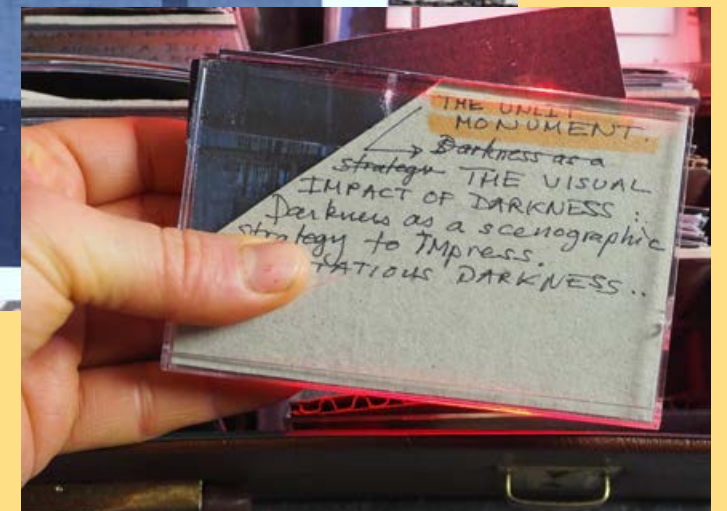 THE UNLIT
MONUMENT.
Darkness as a
strategy THE VISUAL
IMPACT OF DARKNESS :
Darkness as a scenographic
strategy to Impress.
TATIOUS DARKNESS..